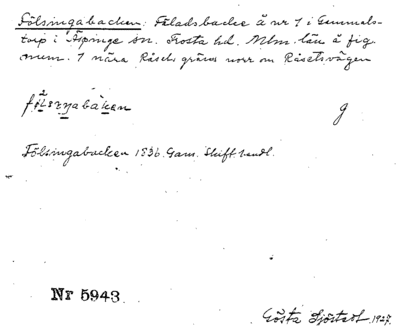 Fölsingabacken: Fäladsbacke å nr 1 i Gummels-
torp i Äspinge sn. Frosta hd. Mlm. län å fig.
num. 1 nära Råsets gräns norr om Råsetsvägen
g
Fölsingabacken 1836. Gam. Skift.handl.
Nr 5943
Gösta Sjöstedt 1927.